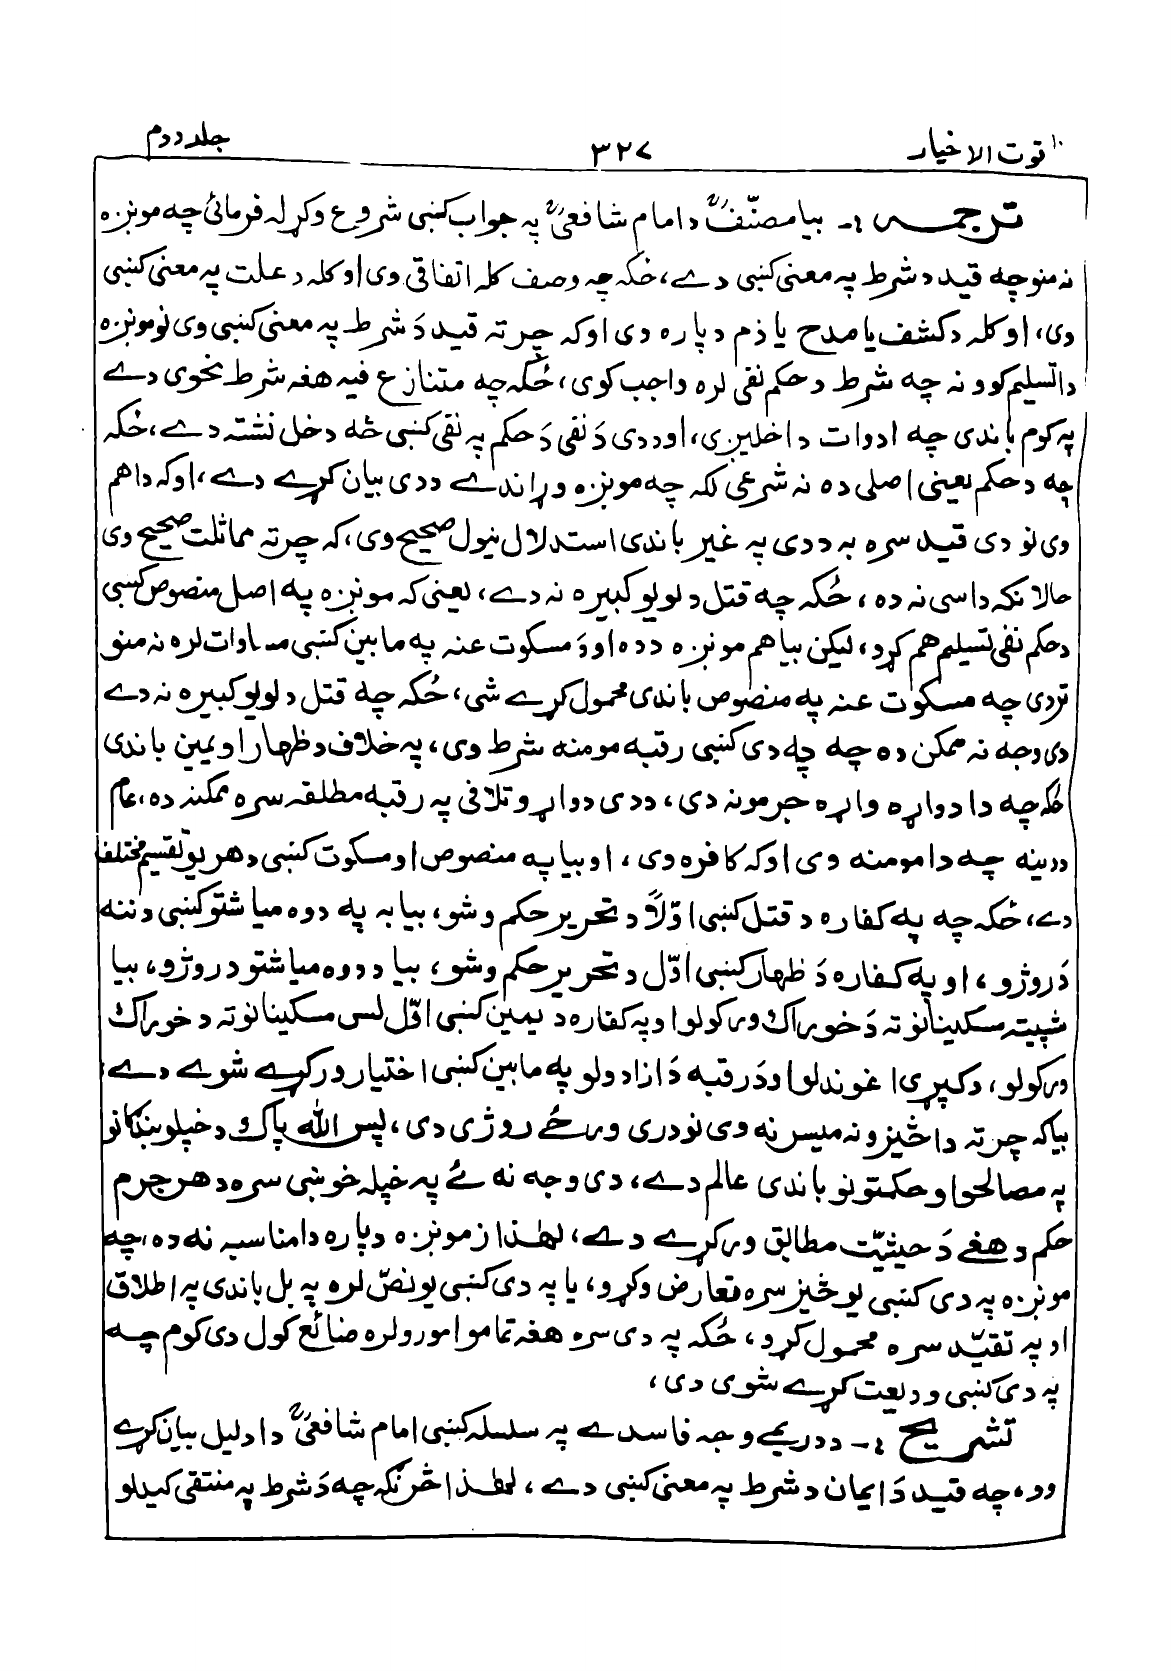 قوت الاخیار ۳۲۷ جلد دوم
ترجمه :- بیا مصنّفؒ د امام شافعیؒ په جواب کښی شروع وکړله فرمائی چه مونږه
نه منو چه قید د شرط په معنی کښی دے، ځکه چه وصف کله اتفاقی وی او کله د علت په معنی کښی
وی، او کله د کشف یا مدح یا ذم د پاره وی او که چرته قید دَ شرط په معنی کښی وی نو مونږه
دا تسلیم کوو نه چه شرط د حکم نفی لره واجب کوی، ځکه چه متنازع فیه هغه شرط نحوی دے
په کوم باندی چه ادوات داخلیږی، او د دی دَ نفی دَ حکم په نفی کښی څه دخل نشته دے، ځکه
چه د حکم یعنی اصلی ده نه شرعی لکه چه مونږه وړاندے د دی بیان کړے دے، او که دا هم
وی نو دی قید سره به د دی په غیر باندی استدلال نیول صحیح وی، که چرته مماثلت صحیح وی
حالانکه داسی نه ده، ځکه چه قتل د لویو کبیره نه دے، یعنی که مونږه په اصل منصوص کښی
د حکم نفی تسلیم هم کړو، لیکن بیا هم مونږه د ده او دَ مسکوت عنه په مابین کښی مساوات لره نه منو
تر دی چه مسکوت عنه په منصوص باندی محمول کړے شی، ځکه چه قتل د لویو کبیره نه دے
دی وجه نه ممکن ده چه چه دی کښی رقبه مومنه شرط وی، په خلاف د ظهار او یمین باندی
ځکه چه دا دواړه واړه جرمونه دی، د دی دواړو تلافی په رقبه مطلقه سره ممکنه ده، عام
دینه چه دا مومنه وی او که کافره وی، او بیا په منصوص او مسکوت کښی د هر یو تقسیم مختلف
دے، ځکه چه په کفاره د قتل کښی اوّلاً د تحریر حکم وشو، بیا به په دوه میاشتو کښی د ننه
دَ روژو، او په کفاره دَ ظهار کښی اوّل د تحریر حکم وشو، بیا د دوه میاشتو د روژو، بیا
شپیته مسکینانو ته دَ خوراک ورکولو او په کفاره د یمین کښی اوّل لس مسکینانو ته د خوراک
ورکولو، د کپړی اغوندلو او دَ رقبه دَ ازادولو په مابین کښی اختیار ورکړے شوے دے،
بیا که چرته دا څیزونه میسر نه وی نو دری ورځے روژی دی، پس الله پاک د خپلو بندکانو
په مصالحو او حکمتونو باندی عالم دے، دی وجه نه ئے په خپله خوښی سره د هر جرم
حکم د هغے دَ حیثیّت مطابق ورکړے دے، لهٰذا زمونږه د پاره دا مناسبه نه ده، چه
مونږه په دی کښی یو څیز سره تعارض وکړو، یا په دی کښی یو نصّ لره په بل باندی په اطلاق
او په تقیّد سره محمول کړو، ځکه په دی سره هغه تمامو امورو لره ضائع کول دی کوم چه
په دی کښی ودیعت کړے شوی دی،
تشریح :- د دریمے وجه فاسدے په سلسله کښی امام شافعیؒ دا دلیل بیان کړے
وو، چه قید دَ ایمان د شرط په معنی کښی دے، لهٰذا څرنګه چه دَ شرط په منتفی کیدلو